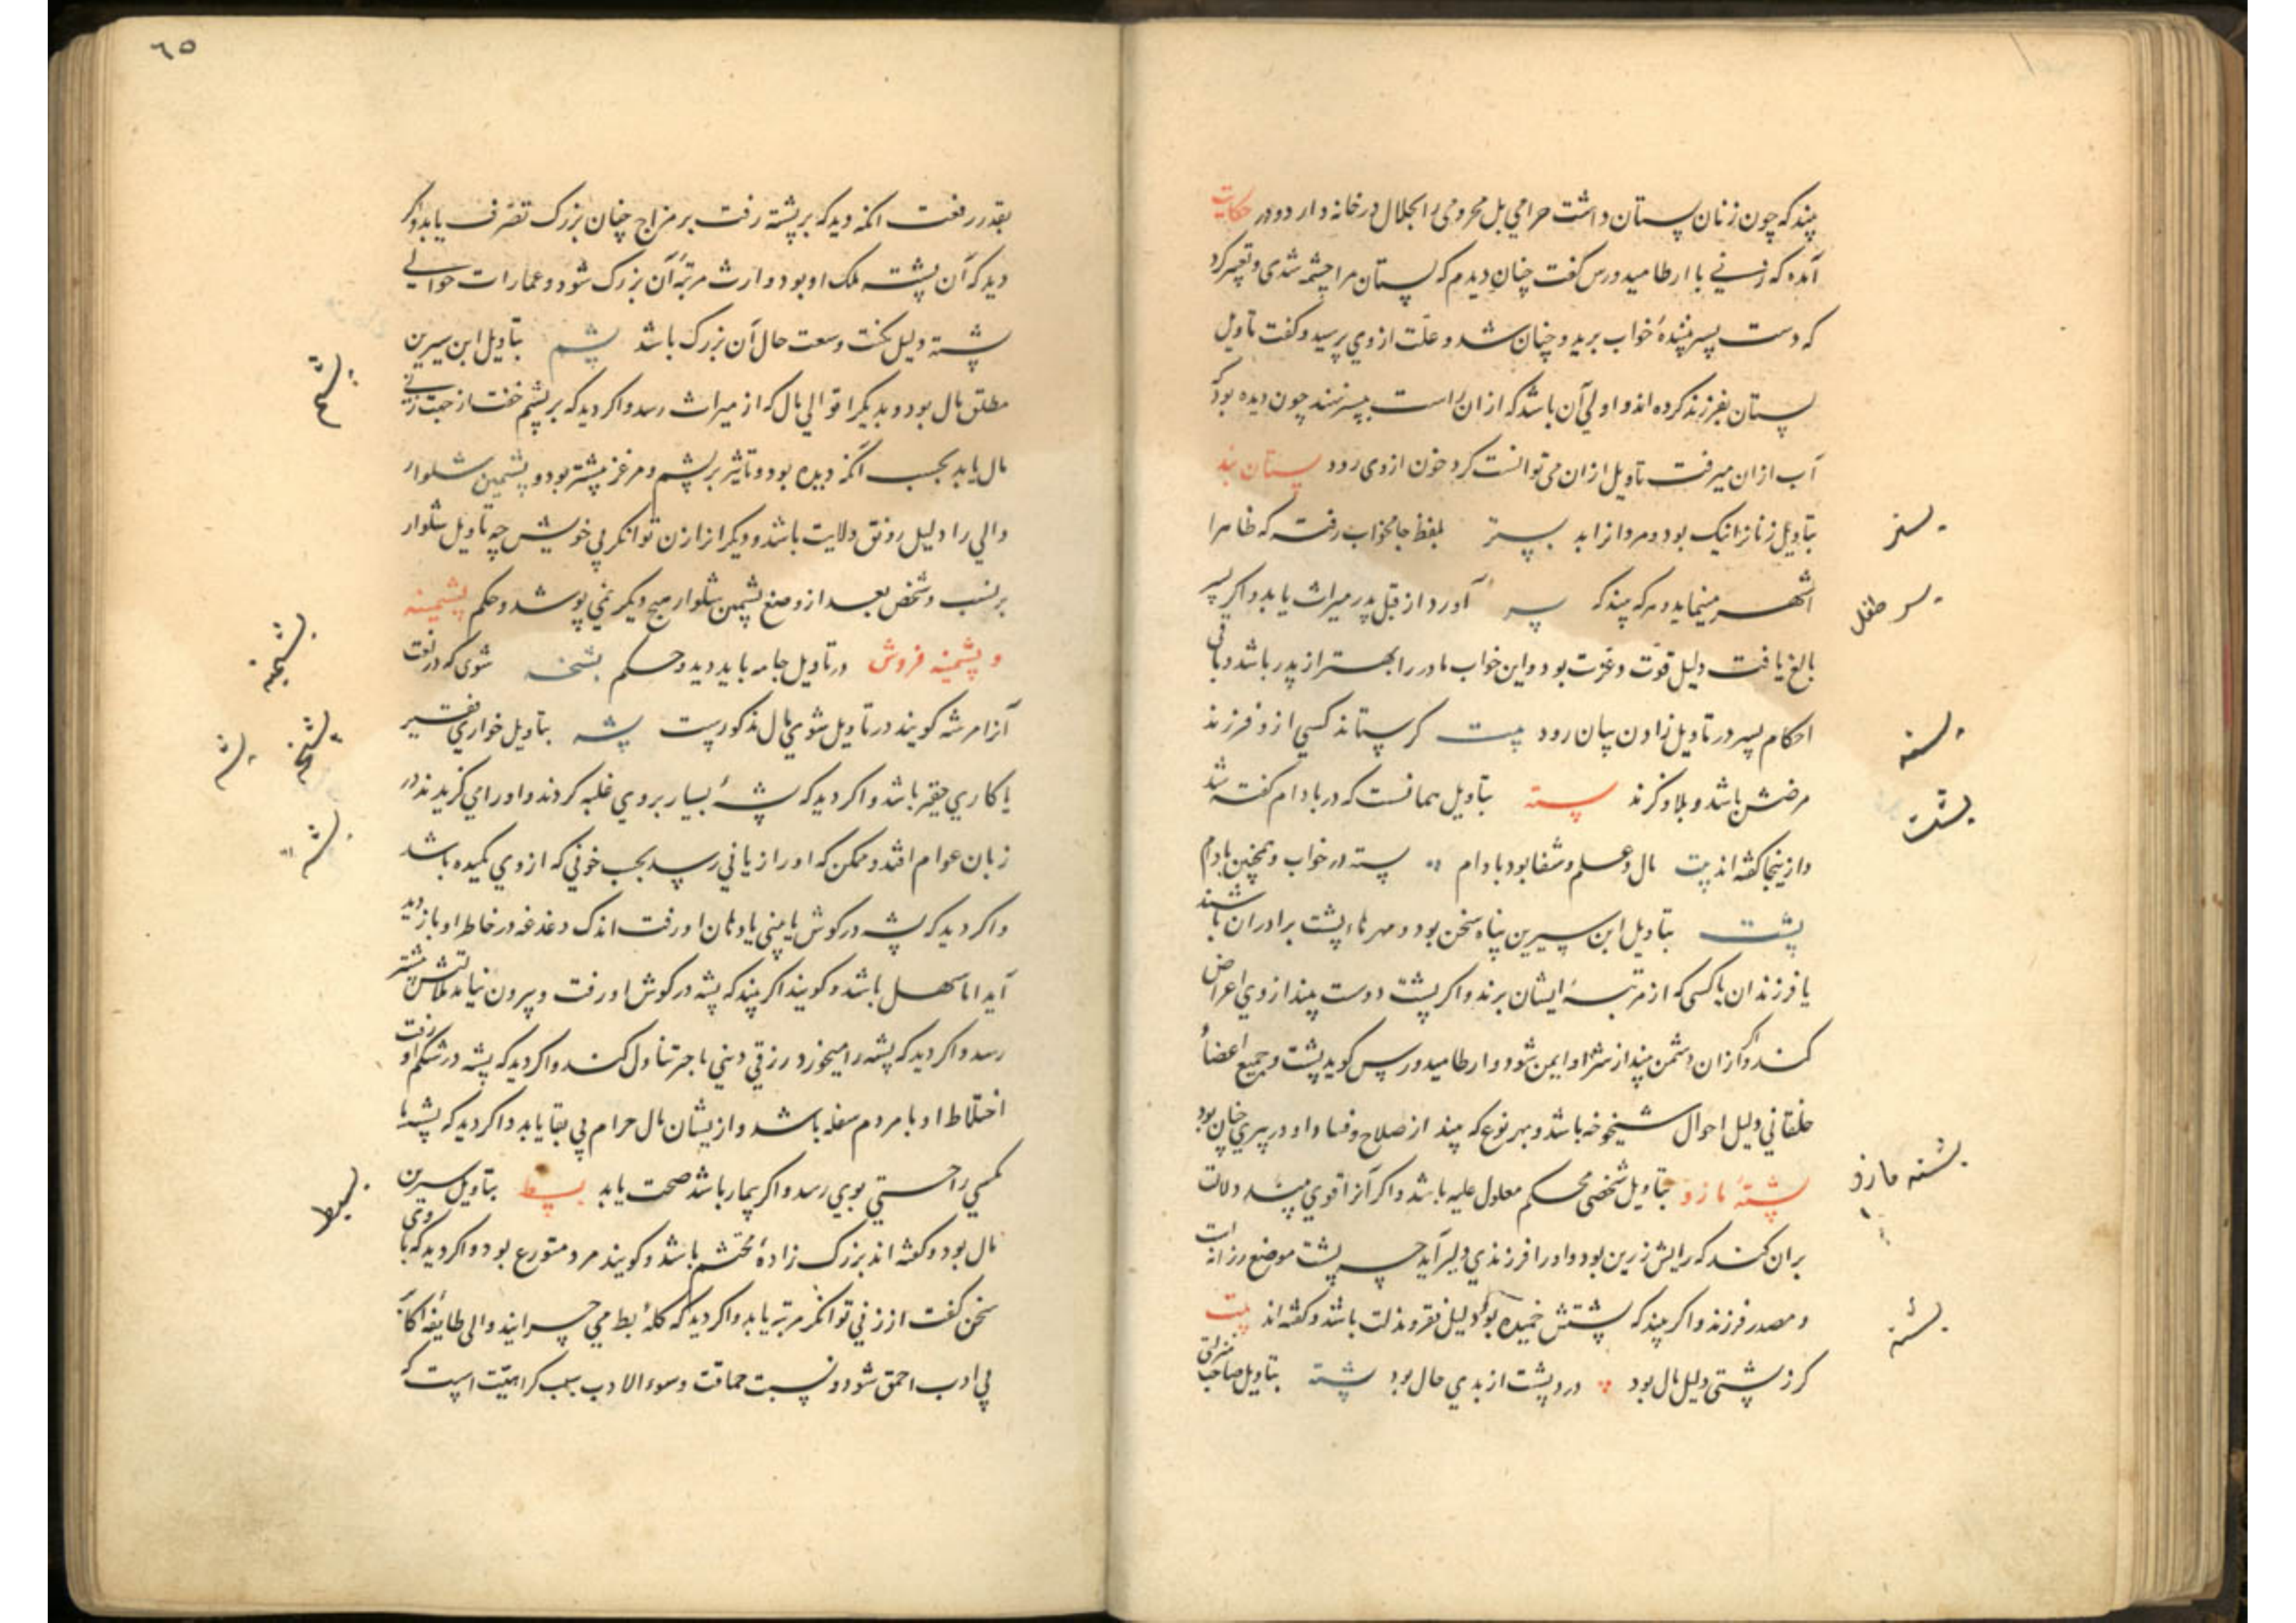 بیند که چون زنان پستان داشت حرامی بل محرومی را بحلال در خانه دارد و در حکایت
آمده که زنی با ارطامیدورس کفت چنان دیدم که پستان مرا چشمه شدی و تعبیر کرد
که دست پسر بینندهٔ خواب برید و چنان شد و علّت از وی پرسید و کفت تاویل
پستان بفرزند کرده اند و اولی آن باشد که از ان راست بپسر نهند چون دیده بود که
آب از ان میرفت تاویل از ان می توانست کرد خون از وی رود پستان بند
بتاویل زنان را نیک بود و مرد را نزاید بستر بلفظ جامخواب رفت که ظاهرا
اشهر مینماید و هر که بیند که پسر آورد از قبل پدر میراث یابد و اکر پسر
بالغ یافت دلیل قوّت و عزت بود و این خواب مادر را بهتر از پدر باشد و باقی
احکام پسر در تاویل زادن بیان رود بیت کر پستاند کسی از و فرزند
مرضش باشد و بلا و کزند پسته بتاویل همانست که در بادام کفته شد
و از ینجا کفته اند بیت مال و علم و شفا بود بادام پسته در خواب و همچنین بادام
پشت بتاویل ابن سیرین پناه سخن بود و مهرهاء پشت برادران باشند
یا فرزندان یا کسی که از مرتبهٔ ایشان برند و اکر پشت دوست بیند از وی اعراض
کند و اکر از ان دشمن بیند از شرّ او ایمن شود و ارطامیدورس کوید پشت و جمیع اعضاء
خلقانی دلیل احوال شیخوخه باشد و بهر نوع که بیند از صلاح و فساد او در پیری چنان بود
پشتهٔ مازو بتاویل شخصی محکم معلول علیه باشد و اکر آنرا قوی بیند دلالت
بران کند که رایش زرین بود و او را فرزندی دلیر آید چه پشت موضع رزانت
و مصدر فرزند و اکر بیند که پشتش خمیده بود دلیل فقر و مذلت باشد و کفته اند بیت
کرز پشتی دلیل مال بود درد پشت از بدی حال بود پشته بتاویل صاحب منزلتی
بستر
پسر طفل
پسته
پشت
پشته مازو
پشته
٦٥
بقدر رفعت انکه دید که بر پشته رفت بر مزاج چنان بزرک تصرّف یابد و اکر
دید که آن پشته ملک او بود وارث مرتبهٔ آن بزرک شود و عمارات حوالی
پشته دلیل بخت و سعت حال آن بزرک باشد پشم بتاویل ابن سیرین
مطلق مال بود و بدیکر اقوالی مال که از میراث رسد و اکر دید که بر پشم خفت از جهت زنی
مال یابد بحسب انکه دیده بود و تاثیر بر پشم و مرغز بیشتر بود و پشمین شلوار
والی را دلیل رونق ولایت باشد و دیکر از ازار زن توانکر بی خویش چه تاویل شلوار
بر نسب و شخص بعد از وضع پشمین شلوار هیچ دیکر نمی پوشد و حکم پشمینه
و پشمینه فروش در تاویل جامه باید دید و حکم بشخه شوی که در لغت
آنرا مرشه کویند در تاویل شوی مال مذکورست پشه بتاویل خواری فقیر
یا کاری حقیر باشد و اکر دید که پشهٔ بسیار بروی غلبه کردند و او را می کزیدند در
زبان عوام افتد و ممکن که او را زیانی رسد بحسب خونی که از وی مکیده باشد
و اکر دید که پشه در کوش یا بینی یا دهان او رفت اندک دغدغه در خاطر او باز دید
آید اما سهل باشد و کویند اکر بیند که پشه در کوش او رفت و بیرون نیامد ملالتش بیشتر
رسد و اکر دید که پشه را میخورد رزقی دینی با جر تناول کند و اکر دید که پشه در شکم او رفت
اختلاط او با مردم سفله باشد و از یشان مال حرام بی بقا یابد و اکر دید که پشه با
کسی راحستی بوی رسد و اکر بیمار باشد صحت یابد بط بتاویل سیرین
مال بود و کفته اند بزرک زادهٔ محتشم باشد و کویند مرد متورع بود و اکر دید که با وی
سخن کفت از زنی توانکر مرتبه یابد و اکر دید که کلهٔ بط می چرانید والی طایفهٔ اکابر
بی ادب احمق شود و نسبت حماقت و سوء الادب بسبب کراهیّت است که
پشم
پشمینه
پشه
پشه
بط